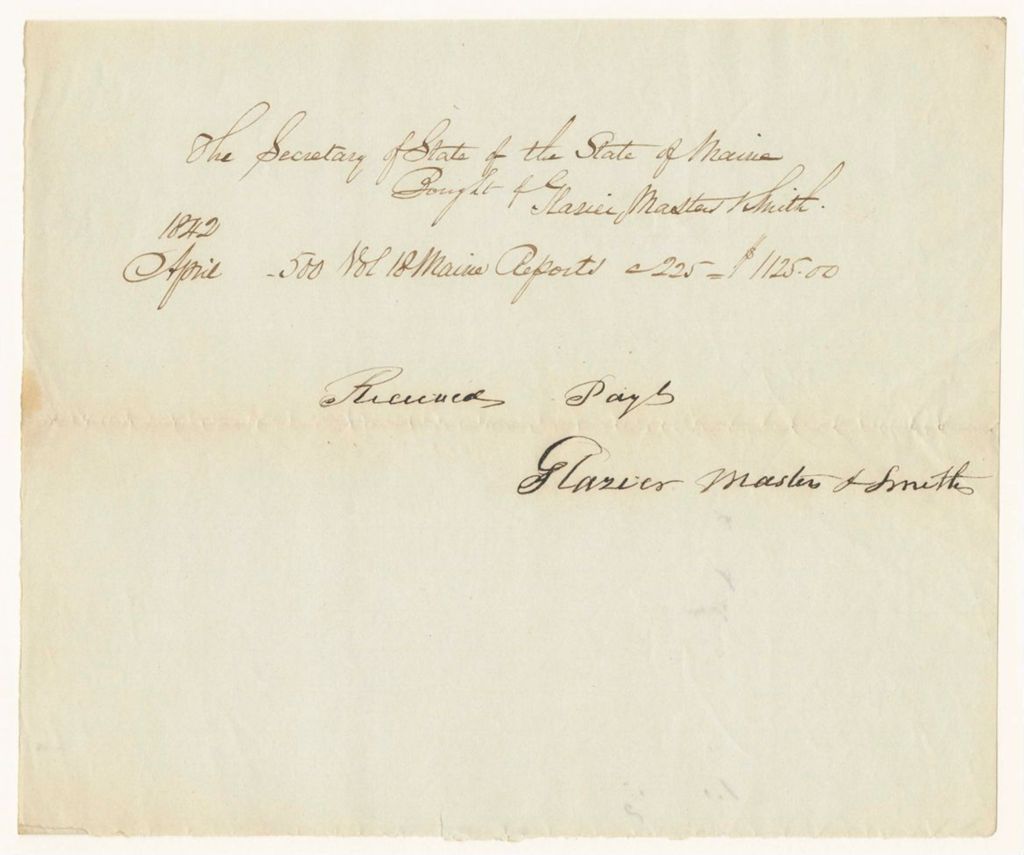 The Secretary of State of the State of Maine
Bought of Glazier, Masters & Smith.
1842
April - 500 Vol 18 Maine Reports @ 225 = $1125.00
Received Payt
Glazier Masters & Smith